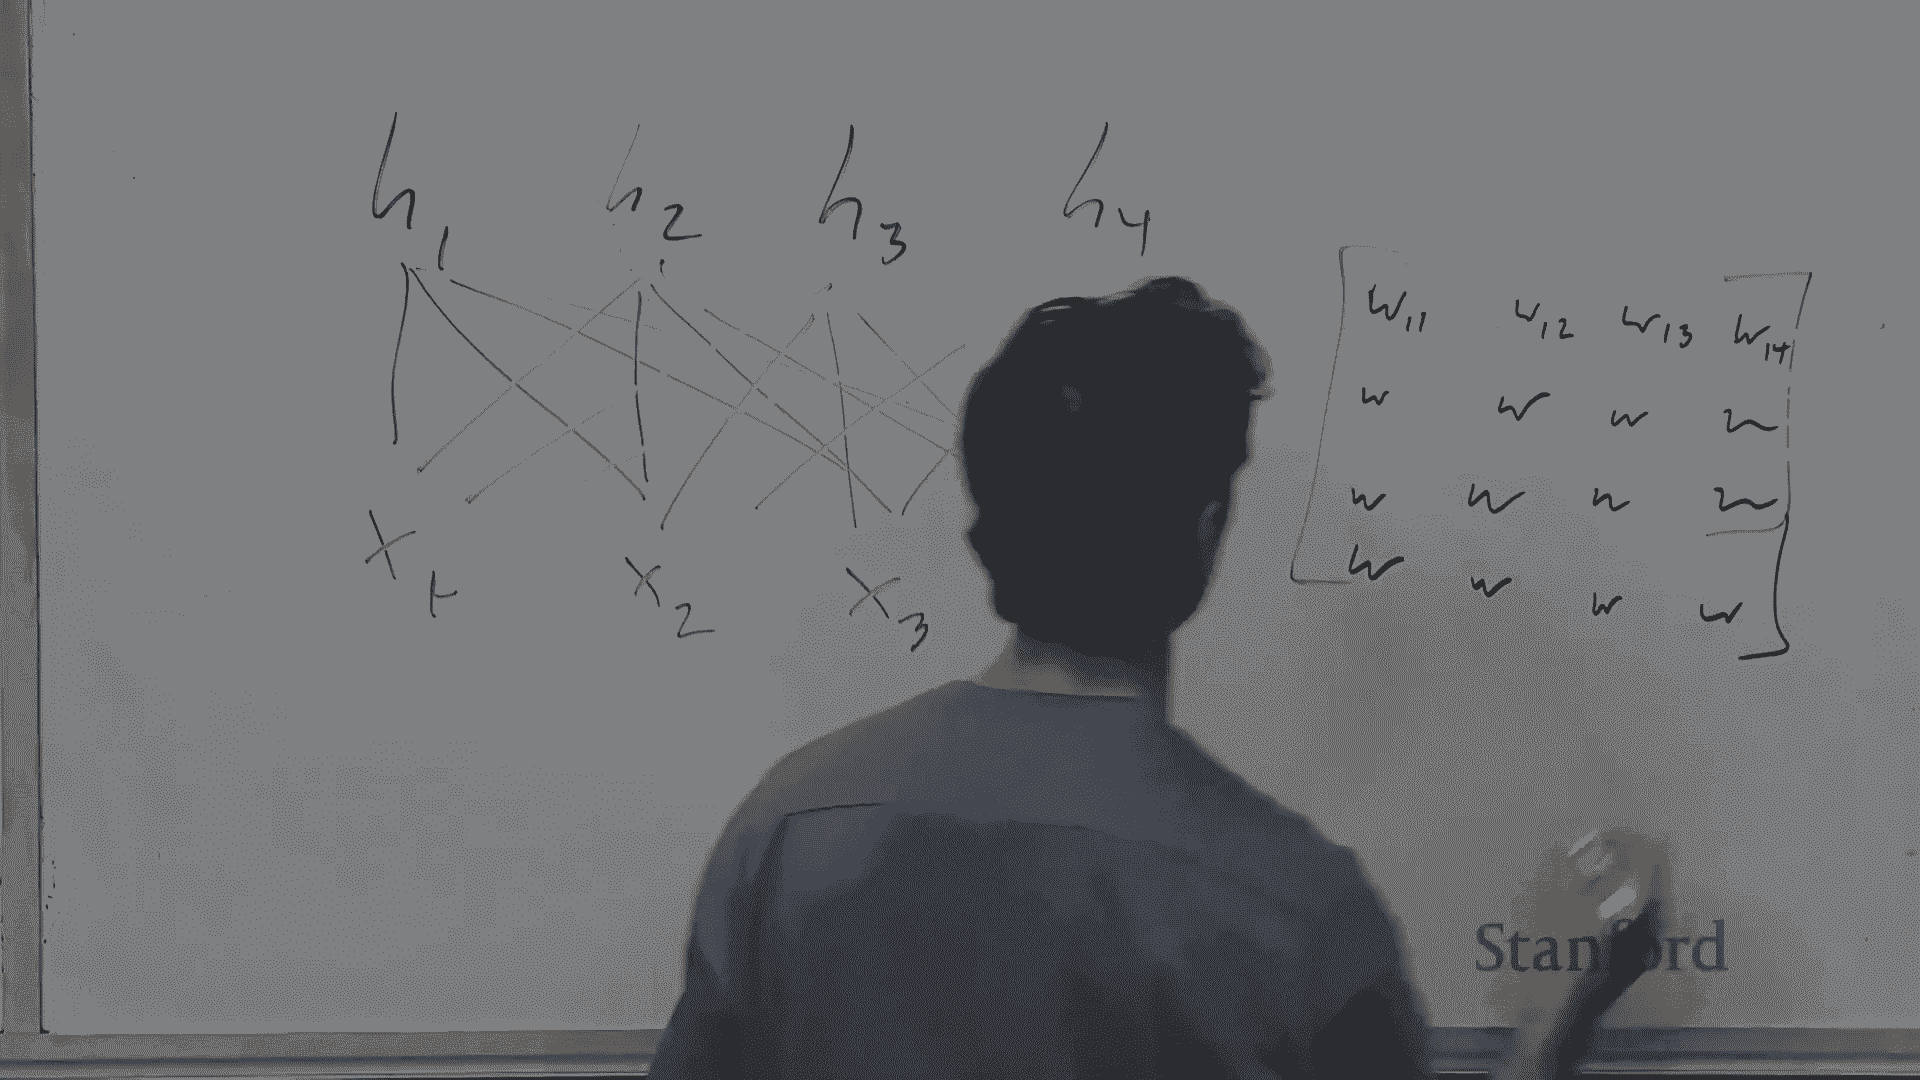 h1 h2 h3 h4
x1 x2 x3
w11 w12 w13 w14
w w w w
w w w w
w w w w
Stanford